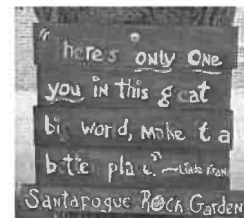 "There's only One
you in this g eat
bi wor d, Make t a
b tte pla e." ~Linda Kran
Santapogue ROck Garden